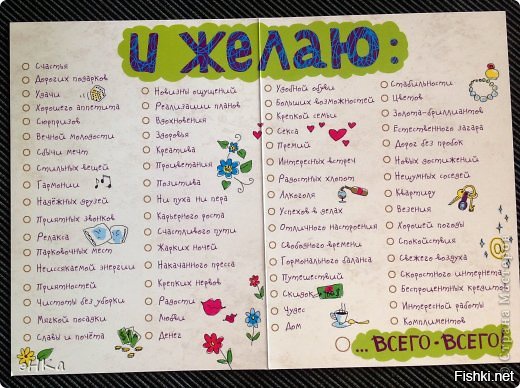 и желаю:
Счастья
Дорогих подарков
Удачи
Хорошего аппетита
Сюрпризов
Вечной молодости
Сбычи мечт
Стильных вещей
Гармонии
Надёжных друзей
Приятных звонков
Релакса
Парковочных мест
Неиссякаемой энергии
Приятностей
Чистоты без уборки
Мягкой посадки
Славы и почёта
Новизны ощущений
Реализации планов
Вдохновения
Здоровья
Креатива
Процветания
Позитива
Ни пуха ни пера
Карьерного роста
Счастливого пути
Жарких ночей
Накачанного пресса
Крепких нервов
Радости
Любви
Денег
Удобной обуви
Больших возможностей
Крепкой семьи
Секса
Премий
Интересных встреч
Радостных хлопот
Алкоголя
Успехов в делах
Отличного настроения
Свободного времени
Гормонального баланса
Путешествий
Скидок
Чудес
Дом
Стабильности
Цветов
Золота-бриллиантов
Естественного загара
Дорог без пробок
Новых достижений
Нешумных соседей
Квартиру
Везения
Хорошей погоды
Спокойствия
Свежего воздуха
Скоростного интернета
Беспроцентных кредитов
Интересной работы
Комплиментов
...ВСЕГО-ВСЕГО!
@
Страна Мастеров
Fishki.net